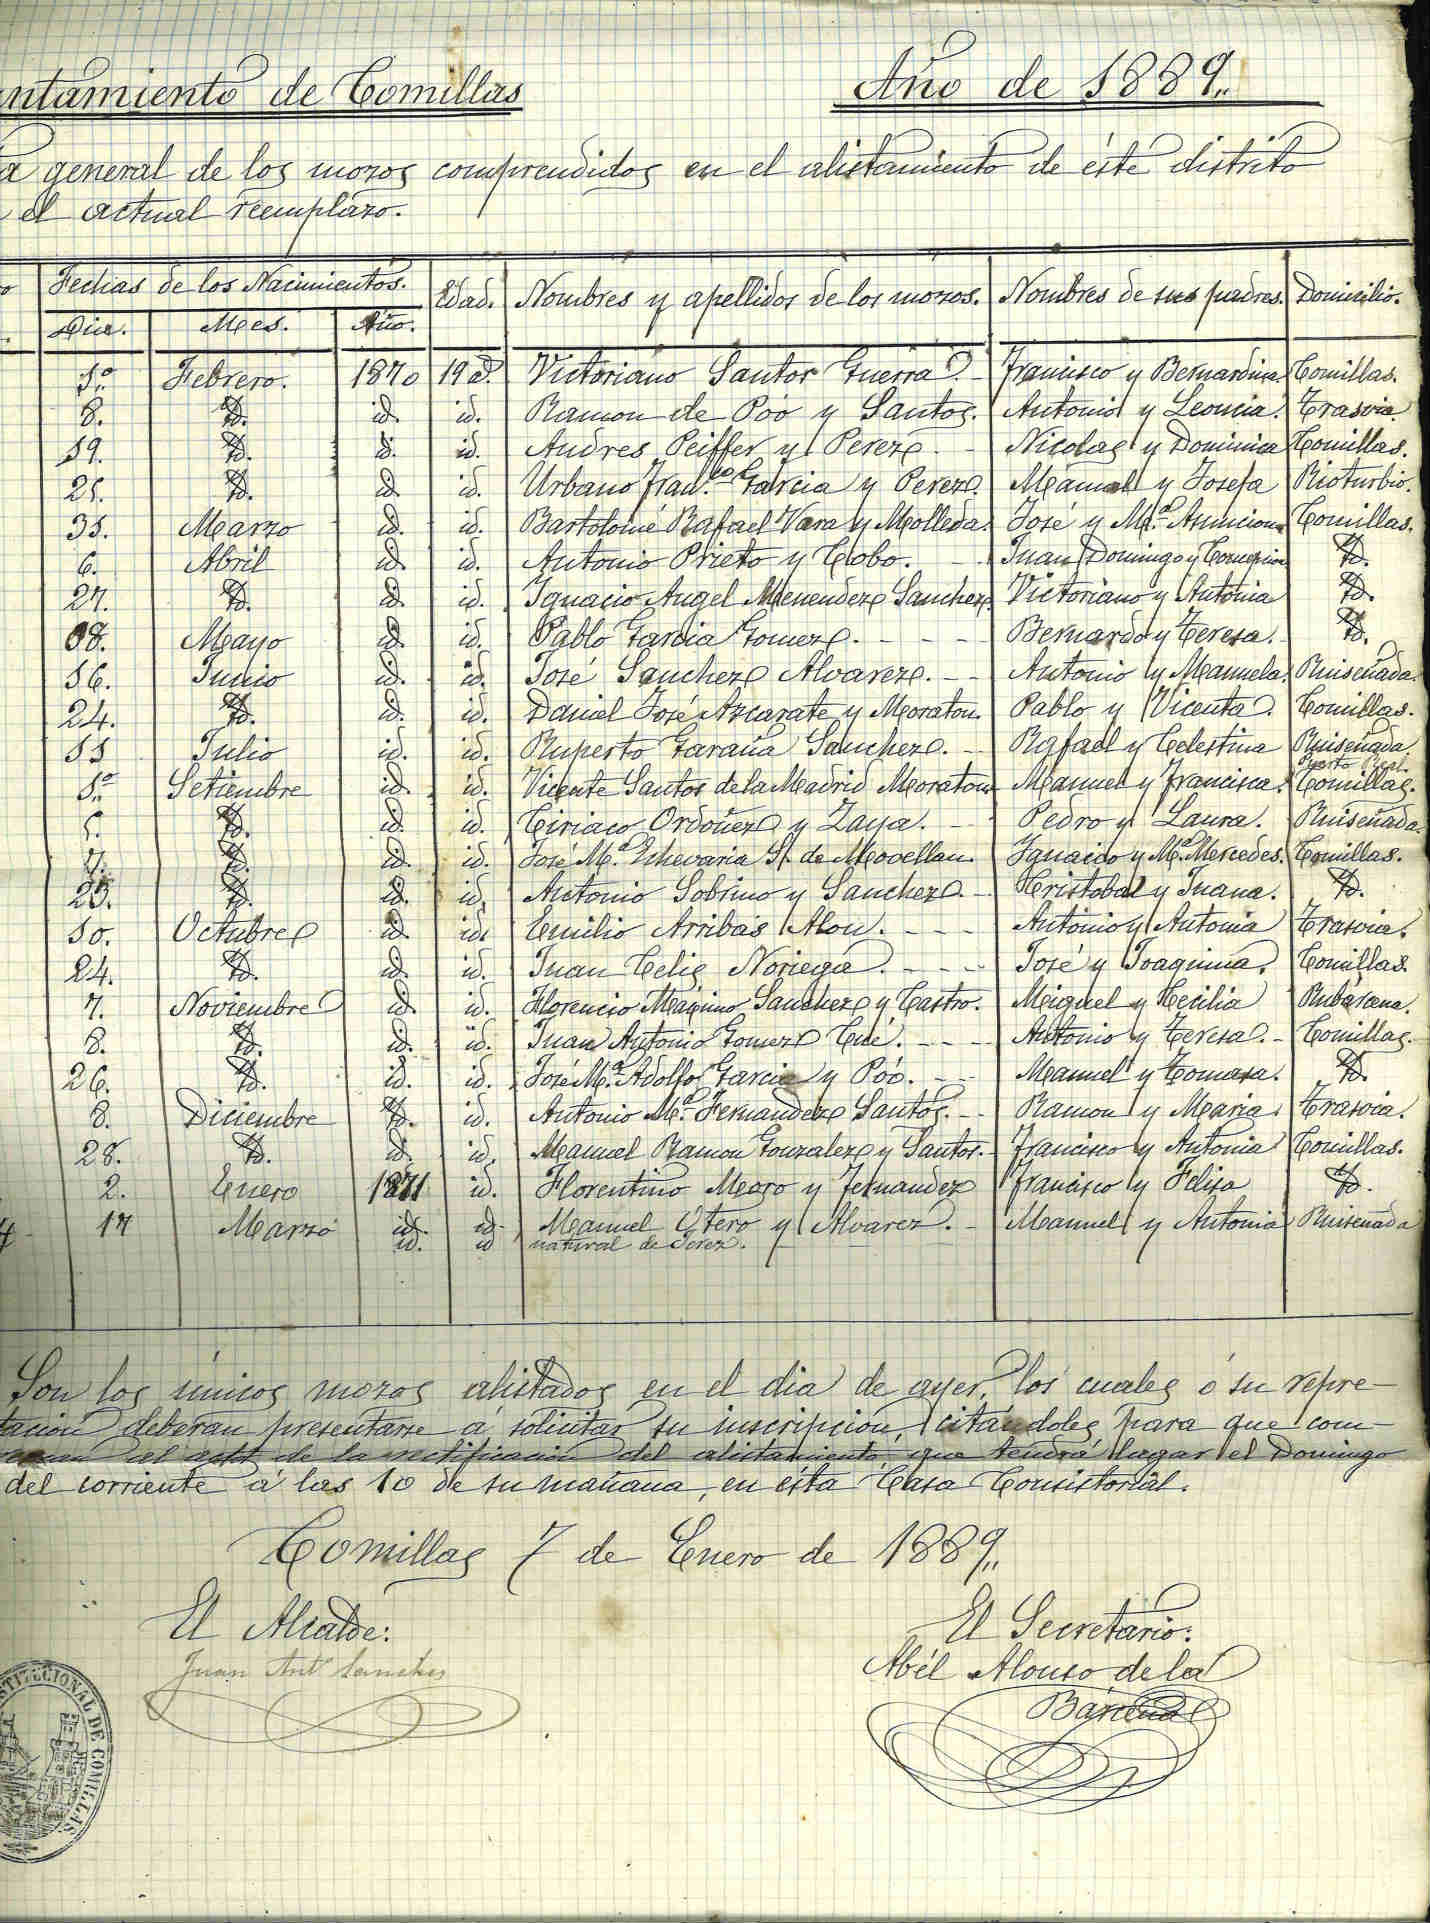 ntamiento de Comillas
Año de 1889,,
a general de los mozos comprendidos en el alistamiento de éste distrito
el actual reemplazo.
Fechas de los Nacimientos. Edad. Nombres y apellidos de los mozos. Nombres de sus padres. Domicilio.
Dia. Mes. Año.
1.º Febrero. 1870 19 a.s Victoriano Santos Guerra. Francisco y Bernardina. Comillas.
8. Id. id. id. Ramon de Póo y Santos. Antonio y Leoncia. Trasvia.
19. Id. id. id. Andres Peiffer y Perez Nicolas y Dominica Comillas.
25. Id. id. id. Urbano Fran.co Garcia y Perez. Manuel y Josefa Rioturbio.
31. Marzo id. id. Bartolomé Rafael Vara y Molleda. José y M.ª Asuncion Comillas.
6. Abril id. id. Antonio Prieto y Cobo. Juan Domingo y Concepcion Id.
27. Id. id. id. Ignacio Angel Menendez Sanchez. Victoriano y Antonia Id.
Mayo id. id. Pablo Garcia Gomez. Bernardo y Teresa. Id.
16. Junio id. id. José Sanchez Alvarez. Antonio y Manuela. Ruiseñada.
24. Id. id. id. Daniel José Azcarate y Moraton. Pablo y Vicenta. Comillas.
11 Julio id. id. Ruperto Garaña Sanchez. Rafael y Celestina Ruiseñada.
Puerto Real
1.º Setiembre id. id. Vicente Santos de la Madrid Moraton Manuel y Francisca. Comillas.
5. Id. id. id. Ciriaco Ordoñez y Zaya. Pedro y Laura. Ruiseñada.
7. Id. id. id. José M.ª Echevaria S. de Movellan. Ignacio y M.ª Mercedes. Comillas.
23. Id. id. id. Antonio Sobrino y Sanchez. Cristobal y Juana. Id.
10. Octubre id. id. Emilio Arribas Alon. Antonio y Antonia Trasvia.
24. Id. id. id. Juan Celis Noriega. José y Joaquina. Comillas.
7. Noviembre id. id. Florencio Maximo Sanchez y Castro. Miguel y Cecilia Rubárcena.
8. Id. id. id. Juan Antonio Gomez Cué. Antonio y Teresa. Comillas.
26. Id. id. id. José M.ª Adolfo Garcia y Póo. Manuel y Tomasa. Id.
8. Diciembre Id. id. Antonio M.ª Fernandez Santos. Ramon y Maria. Trasvia.
28. Id. id. id. Manuel Ramon Gonzalez y Santos. Francisco y Antonia Comillas.
2. Enero 1871 id. Florentino Moro y Fernandez Francisco y Felisa Id.
17 Marzo id. id. Manuel Otero y Alvarez. Manuel y Antonia Ruiseñada
id. id natural de Jerez.
Son los únicos mozos alistados en el dia de ayer, los cuales ó su repre-
tación deberan presentarse á solicitar su inscripcion, citándoles para que com-
al acto de la rectificacion del alistamiento que tendrá lugar el Domingo
del corriente á las 10 de su mañana, en ésta Casa Consistorial.
Comillas 7 de Enero de 1889,,
El Alcalde:
El Secretario:
Juan Ant.º Sanchez
Abél Alonso de la
Bárcena
STITUCIONAL DE COMILLAS